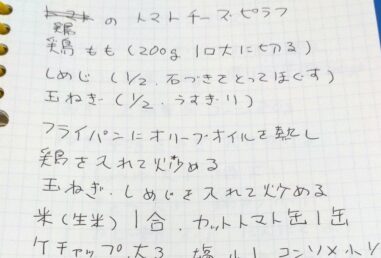 鶏 の トマトチーズピラフ
鶏もも (200g 1口大に切る)
しめじ (1/2. 石づきをとってほぐす)
玉ねぎ (1/2. うすぎり)
フライパンにオリーブオイルを熱し
鶏を入れて炒める
玉ねぎ. しめじを入れて炒める
米(生米) 1合. カットトマト缶1缶
ケチャップ. 大3 塩 小1 コンソメ小1/